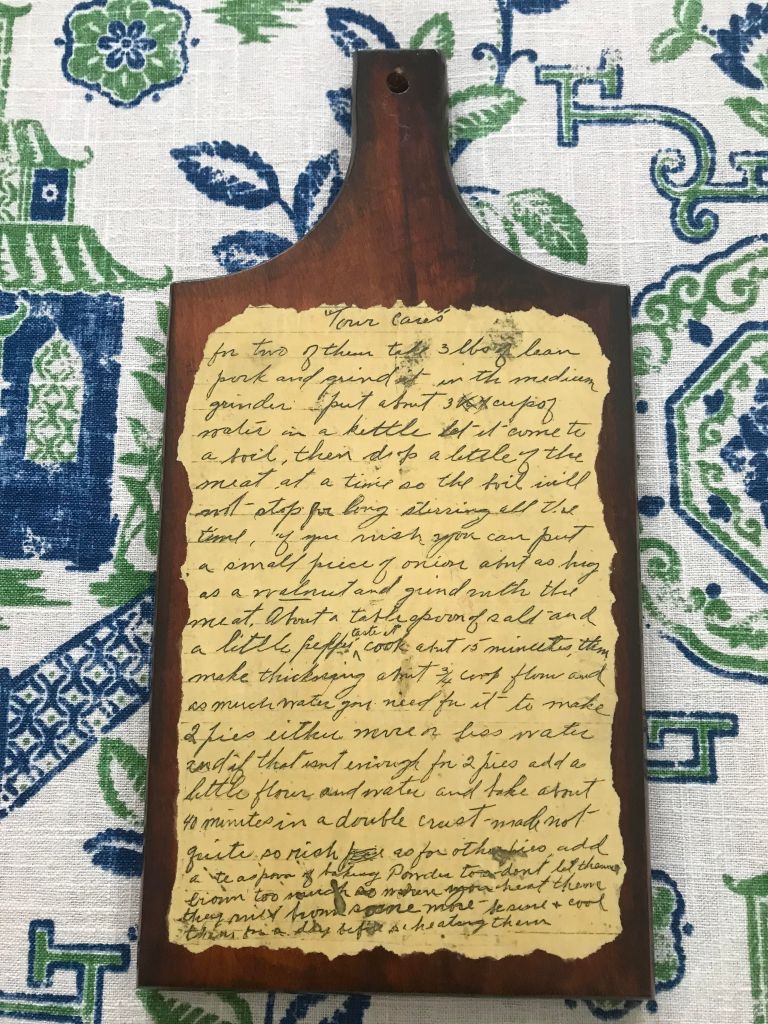 "Tour Cares"
for two of them take 3 lbs of lean
pork and grind it in th medium
grinder put about 3 cups of
water in a kettle let it come to
a boil, then drop a little of the
meat at a time so the boil will
not stop for long stirring all the
time, if you wish you can put
a small piece of onion about as big
as a walnut and grind with the
meat. About a tablespoon of salt and
a little pepper taste it cook about 15 minutes, then
make thickning about 3/4 cup flour and
as much water you need for it to make
2 pies either more or less water
and if that isnt enough for 2 pies add a
little flour and water and bake about
40 minutes in a double crust made not
quite so rich as for other pies, add
a teaspoon of baking Powder to dont let them
brown too much so when you heat them
they will brown some more be sure + cool
them for a day before heating them